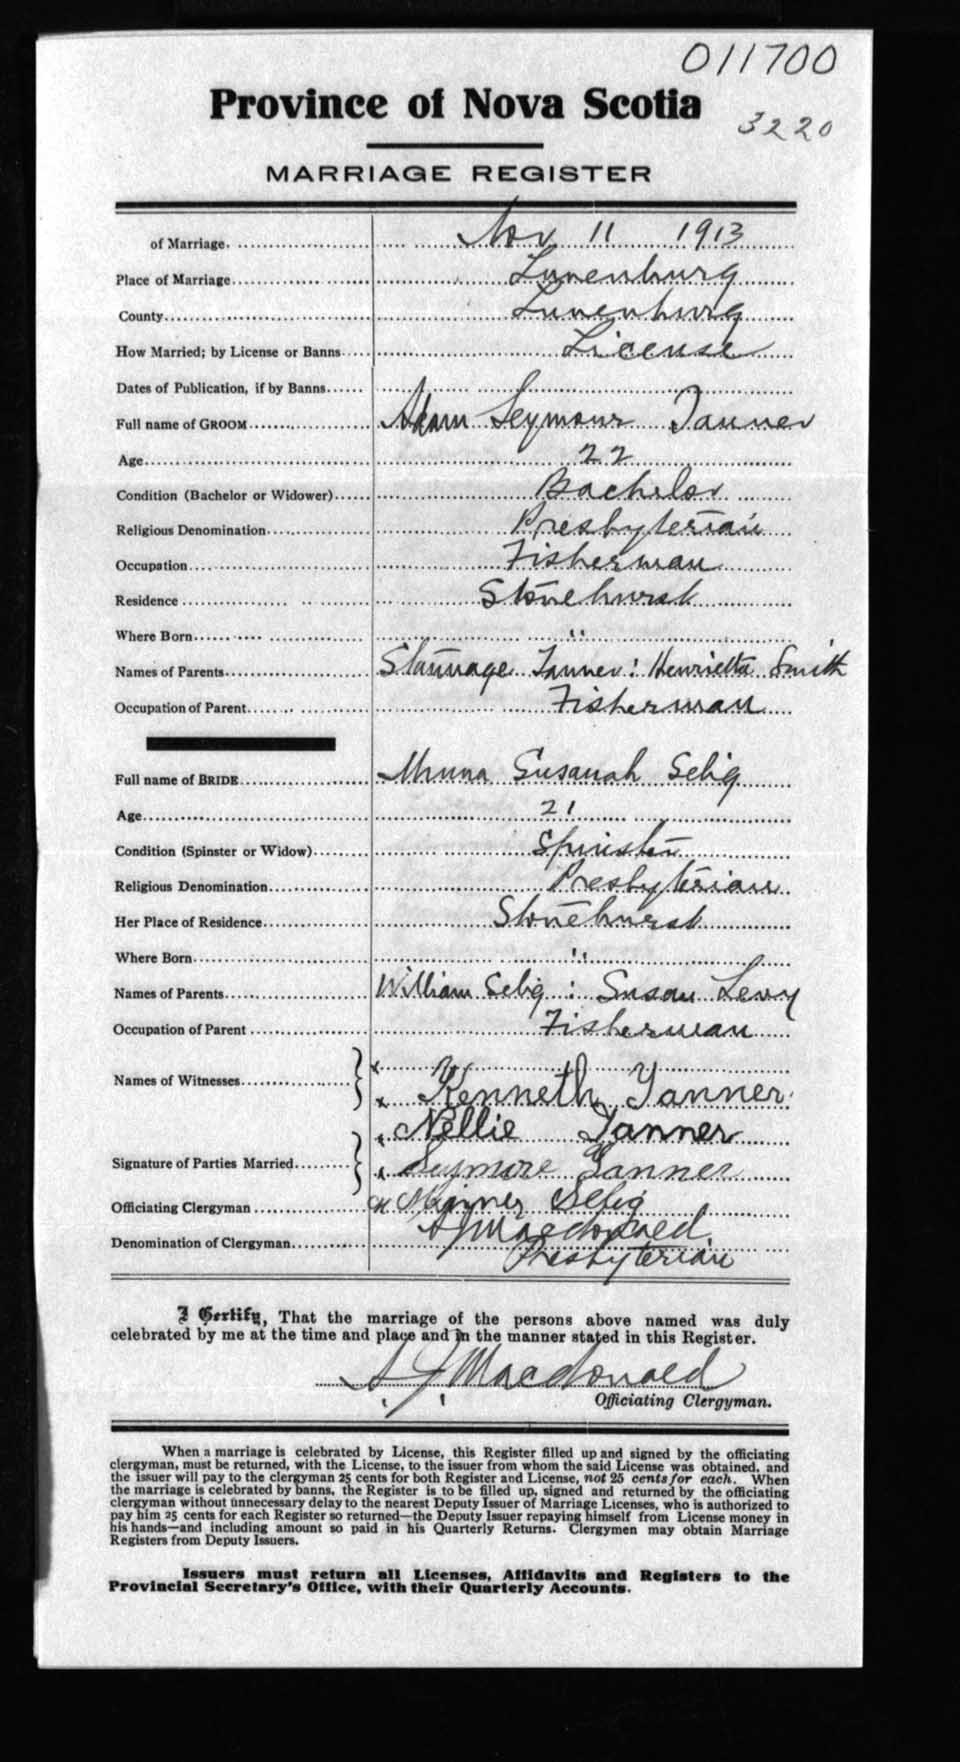 011700
Province of Nova Scotia
3220
MARRIAGE REGISTER
of Marriage. Nov 11 1913
Place of Marriage Lunenburg
County Lunenburg
How Married; by License or Banns License
Dates of Publication, if by Banns
Full name of GROOM Adam Seymour Tanner
Age 22
Condition (Bachelor or Widower) Bachelor
Religious Denomination Presbyterian
Occupation Fisherman
Residence Stonehurst
Where Born "
Names of Parents Stannage Tanner : Henrietta Smith
Occupation of Parent Fisherman
Full name of BRIDE Susanah Selig
Age 21
Condition (Spinster or Widow) Spinster
Religious Denomination Presbyterian
Her Place of Residence Stonehurst
Where Born "
Names of Parents William Selig : Susan Levy
Occupation of Parent Fisherman
Names of Witnesses
x Kenneth Tanner
x Nellie Tanner
Signature of Parties Married x Seymore Tanner
Officiating Clergyman Selig
A J Macdonald
Denomination of Clergyman Presbyterian
I Certify, That the marriage of the persons above named was duly
celebrated by me at the time and place and in the manner stated in this Register.
A J Macdonald
Officiating Clergyman.
When a marriage is celebrated by License, this Register filled up and signed by the officiating
clergyman, must be returned, with the License, to the issuer from whom the said License was obtained, and
the issuer will pay to the clergyman 25 cents for both Register and License, not 25 cents for each. When
the marriage is celebrated by banns, the Register is to be filled up, signed and returned by the officiating
clergyman without unnecessary delay to the nearest Deputy Issuer of Marriage Licenses, who is authorized to
pay him 25 cents for each Register so returned—the Deputy Issuer repaying himself from License money in
his hands—and including amount so paid in his Quarterly Returns. Clergymen may obtain Marriage
Registers from Deputy Issuers.
Issuers must return all Licenses, Affidavits and Registers to the
Provincial Secretary's Office, with their Quarterly Accounts.